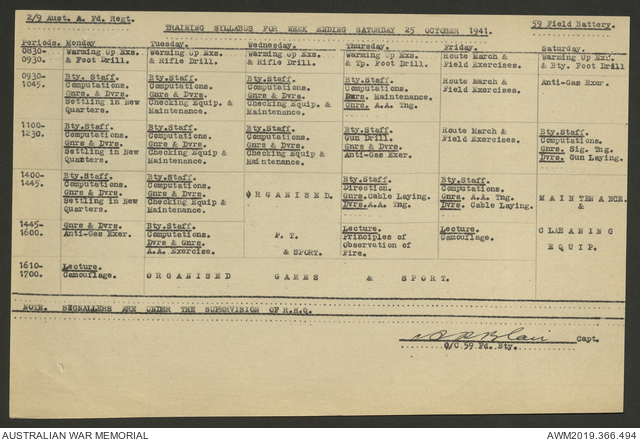 2/9 Aust. A. Fd. Regt.
TRAINING SYLLABUS FOR WEEK ENDING SATURDAY 25 OCTOBER 1941.
59 Field Battery.
Periods. Monday Tuesday. Wednesday. Thursday. Friday. Saturday.
0830- Warming Up Exs. Warming Up Exs Warming Up Exs. Warming Up Exs Route March & Warming Up Exd.
0930. & Foot Drill. & Rifle Drill. & Rifle Drill. & Tp. Foot Drill Field Exercises. & Bty. Foot Drill
0930- Bty. Staff. Bty.Staff. Bty. Staff. Bty.Staff Route March & Anti-Gas Exer.
1045. Computations. Computations. Computations. Computations. Field Exercises.
Gnrs. & Dvrs. Gnrs & Dvrs. Gnrs & Dvrs. Dvrs. Maintenance.
Settling in New Checking Equip. & Checking Equip. & Gnrs. A.A. Tng.
Quarters. Maintenance. Maintenance.
1100- Bty.Staff Bty.Staff Bty.Staff. Bty.Staff. Route March & Bty.Staff.
1230. Computations. Computations. Computations. Gun Drill. Field Exercises. Computations.
Gnrs & Dvrs. Gnrs & Dvrs. Gnrs & Dvrs. Gnrs & Dvrs. Gnrs. Sig. Tng.
Settling in New Checking Equip & Checking Equip & Anti-Gas Exer. Dvrs. Gun Laying.
Quarters. Maintenance. Maintenance.
1400- Bty.Staff. Bty.Staff. Bty.Staff. Bty.Staff.
1445. Computations. Computations. Direction. Computations.
Gnrs & Dvrs. Gnrs & Dvrs. ORGANISED. Gnrs. Cable Laying. Gnrs. A.A. Tng. MAINTENANCE.
Settling in New Checking Equip & Dvrs.A.A. Tng. Dvrs. Cable Laying.
Quarters. Maintenance. &
1445- Gnrs & Dvrs. Bty.Staff. Lecture. Lecture.
1600. Anti-Gas Exer. Computations. P. T. Principles of Camouflage. CLEANING
Dvrs & Gnrs. Observation of
A.A. Exercise. & SPORT. Fire. EQUIP.
1610- Lecture.
1700. Camouflage. ORGANISED GAMES & SPORT.
NOTE. SIGNALLERS ARE UNDER THE SUPERVISION OF R.H.Q.
Blair Capt.
O/C 59 Fd. Bty.
AUSTRALIAN WAR MEMORIAL AWM2019.366.494